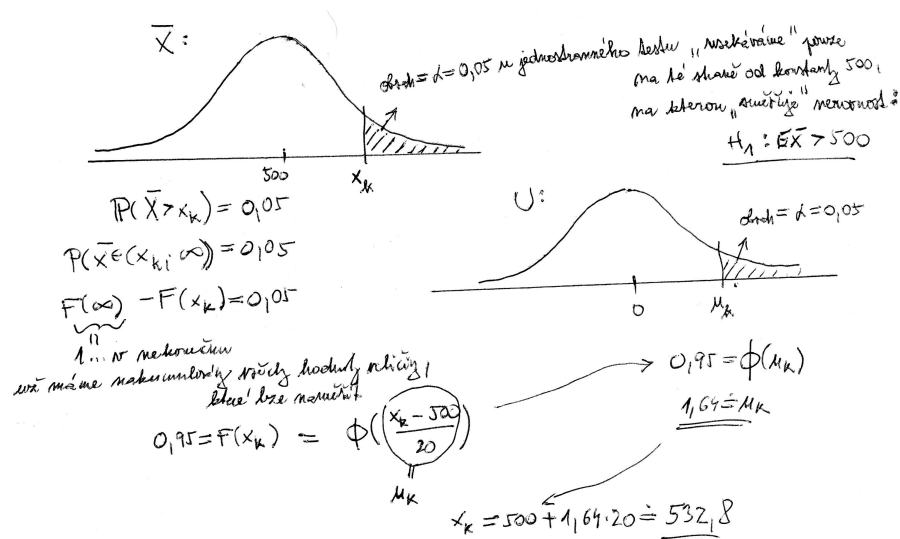 X̄:
obsah = α = 0,05 u jednostranného testu „usekáváme" pouze
na té straně od konstanty 500,
na kterou „směřuje" nerovnost:
H₁: EX̄ > 500
500
x_k
P(X̄ > x_k) = 0,05
P(X̄ ∈ (x_k; ∞)) = 0,05
F(∞) − F(x_k) = 0,05
1... v nekonečnu
už máme nakumulovány všechny hodnoty veličiny,
které lze naměřit
0,95 = F(x_k) = ϕ((x_k − 500)/20)
u_k
U:
obsah = α = 0,05
0
u_k
0,95 = ϕ(u_k)
1,64 ≐ u_k
x_k = 500 + 1,64·20 ≐ 532,8